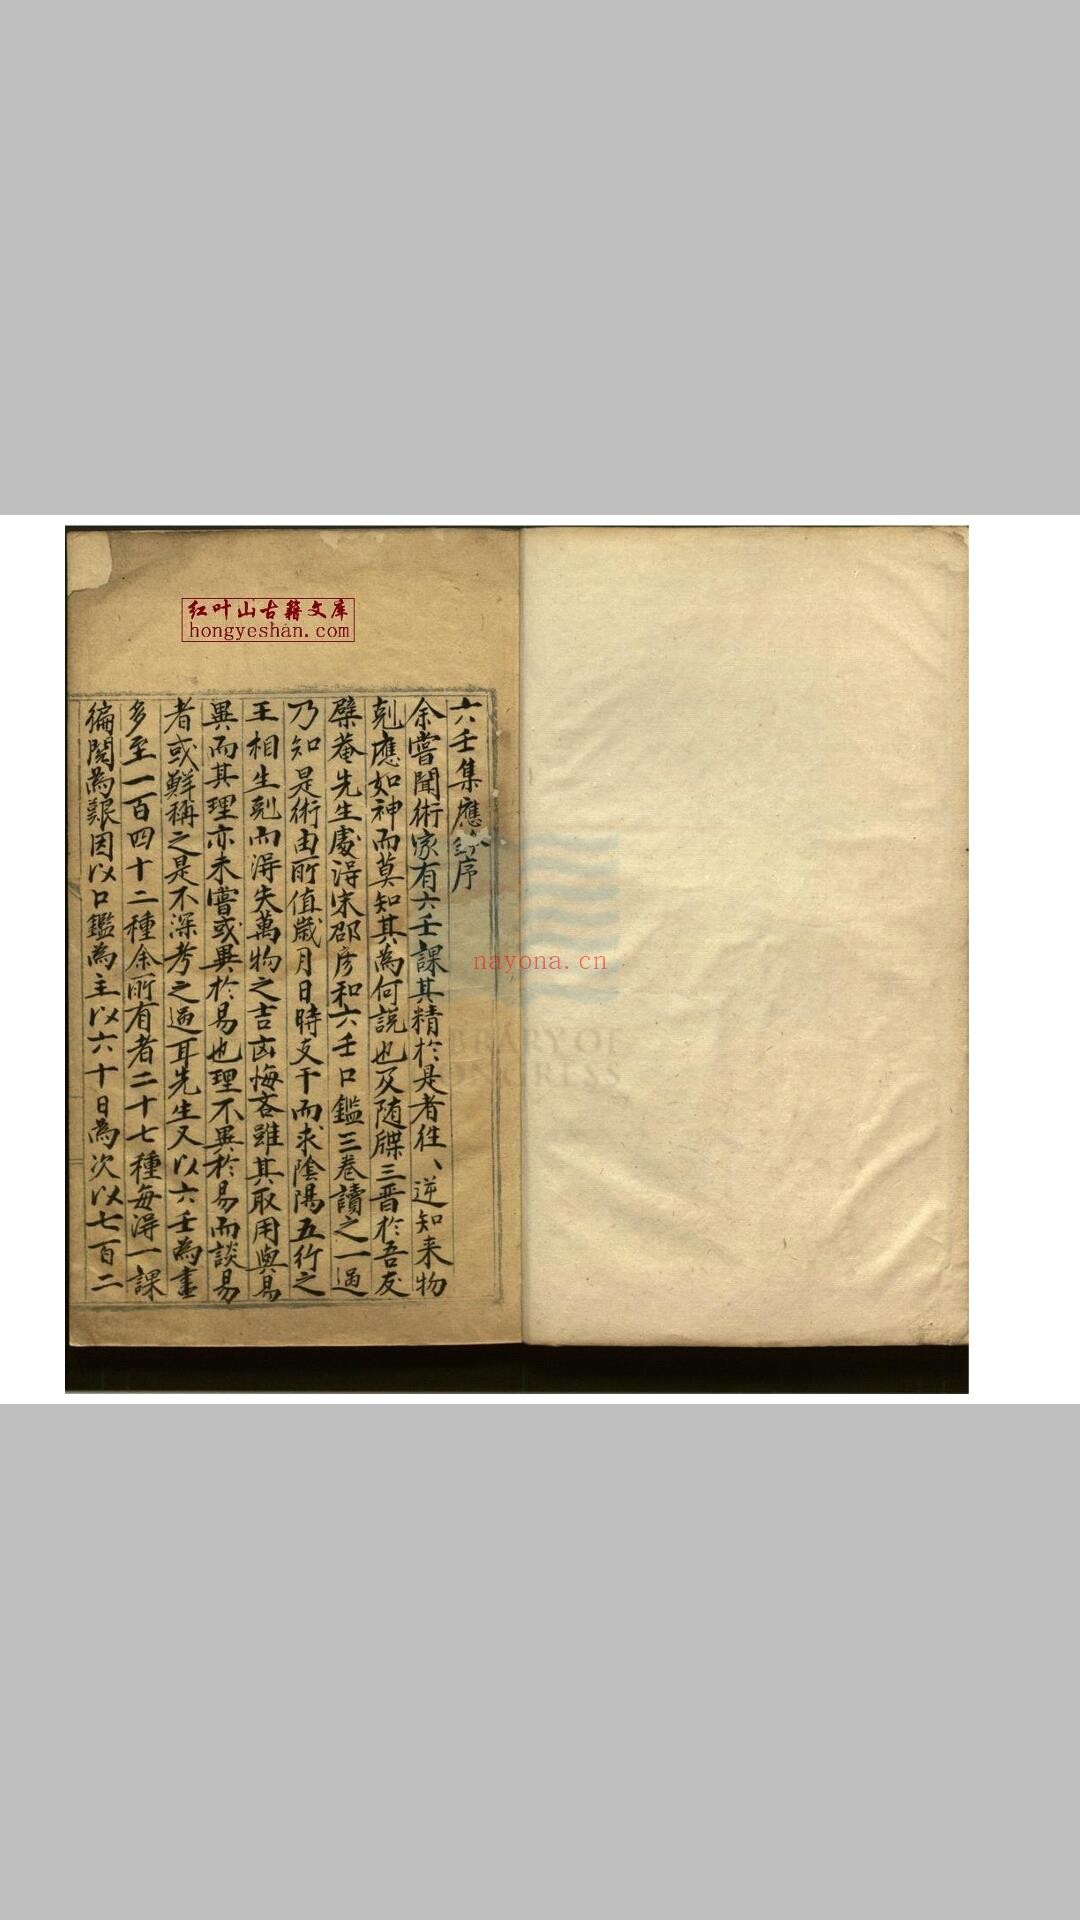 红叶山古籍文库
hongyeshan.com
六壬集應鈐序
余嘗聞術家有六壬課其精於是者徃〻逆知来物
剋應如神而莫知其為何說也及随牒三晋於吾友
檗菴先生處淂宋邵彦和六壬口鑑三卷讀之一過
乃知是術由所值歲月日時支干而求陰陽五行之
王相生剋而淂失萬物之吉凶悔吝雖其取用與易
異而其理亦未嘗或異於易也理不異於易而談易
者或鮮稱之是不深考之過耳先生又以六壬為書
多至一百四十二種余所有者二十七種每淂一課
徧閱為艱因以口鑑為主以六十日為次以七百二
nayona.cn
LIBRARY OF
CONGRESS